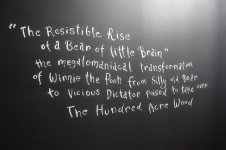 "The Resistible Rise
of a Bear of little Brain"
the megalomaniacal transformation
of Winnie the Pooh from Silly old Bear
to Vicious Dictator poised to take over
The Hundred Acre Wood